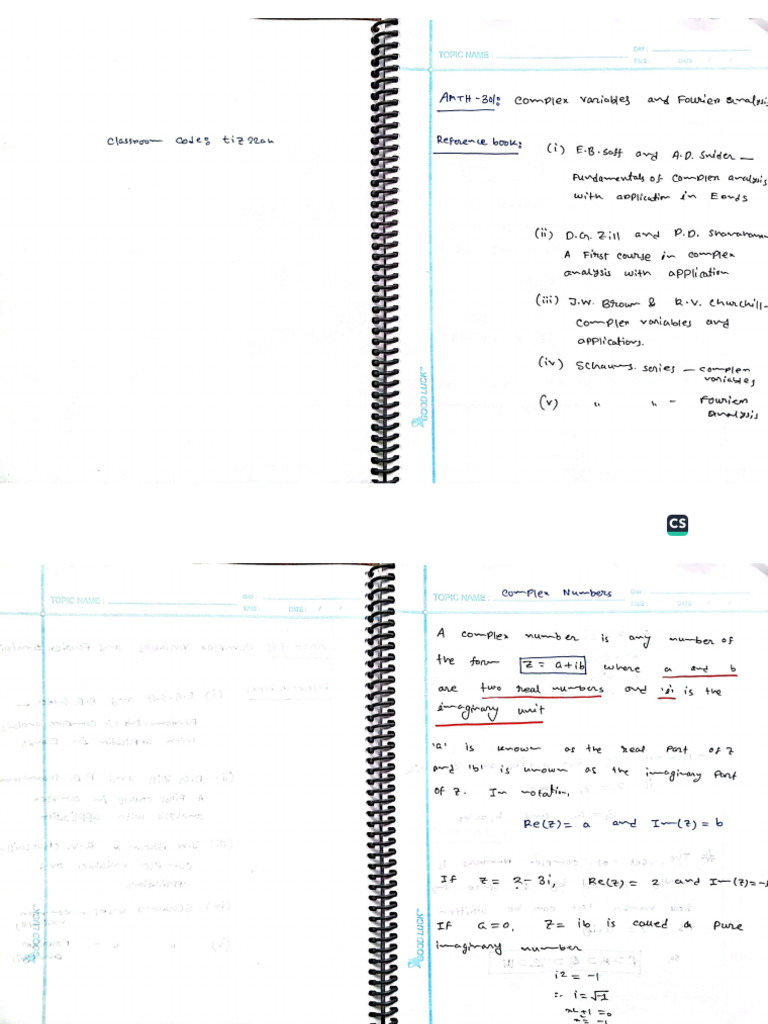 TOPIC NAME :
DAY :
TIME : DATE : / /
Classroom Code:
AMTH-301: Complex variables and Fourier analysis
Reference book:
(i) E.B. Saff and A.D. Snider —
Fundamentals of complex analysis
with application in
(ii) D.G. Zill and P.D.
A First course in complex
analysis with application
(iii) J.W. Brown & R.V. Churchill-
complex variables and
applications.
(iv) Schaums. series — complex
variables
(v) " " - Fourier
analysis
GOOD LUCK
CS
TOPIC NAME :
DAY :
TIME : DATE : / /
TOPIC NAME : Complex Numbers
DAY :
TIME : DATE : / /
A complex number is any number of
the form z = a+ib where a and b
are two real numbers and 'i' is the
imaginary unit
'a' is known as the real part of z
and 'b' is known as the imaginary part
of z. In notation,
Re(z) = a and Im(z) = b
If z = 2-3i, Re(z) = 2 and Im(z) = -
If a=0, z = ib is called a pure
imaginary number
i2 = -1
∴ i = √-1
GOOD LUCK
GOOD LUCK